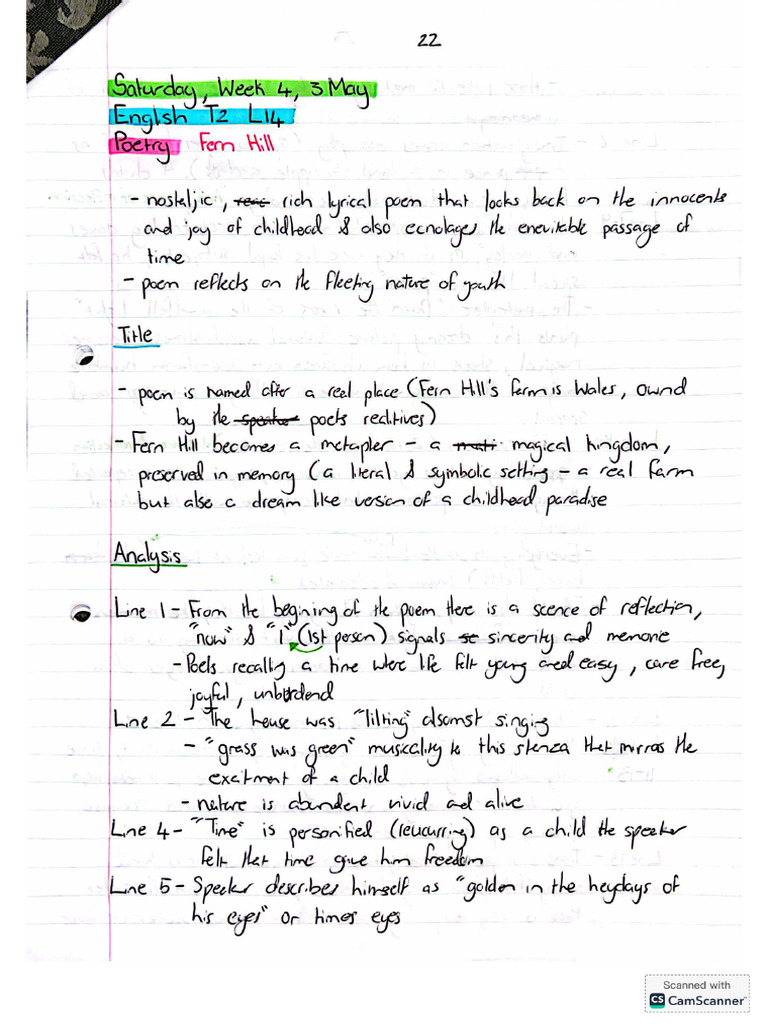 22
Saturday, Week 4, 3 May
English T2 L14
Poetry Fern Hill
- nostaljic, rich lyrical poem that looks back on the innocents
and joy of childhood & also ecnolages the enevitable passage of
time
- poem reflects on the fleeting nature of youth
Title
- poem is named after a real place (Fern Hill's farm is Wales, ownd
by the speaker poets realitives)
- Fern Hill becomes a metapler - a magical kingdom,
preserved in memory (a literal & symbolic setting - a real farm
but also a dream like version of a childhood paradise
Analysis
Line 1 - From the begining of the poem there is a scence of reflection,
"now" & "I" (1st person) signals sincerity and memorie
- Poets recalling a time were life felt young and easy, care free,
joyful, unburdend
Line 2 - The house was "lilting" alsomst singing
- "grass was green" musicality to this stenza that mirros the
exaitment of a child
- nature is abundent vivid and alive
Line 4 - "Time" is personified (reucurring) as a child the speaker
felt that time give him freedom
Line 5 - Speaker describes himself as "golden in the heydays of
his eyes" or times eyes
Scanned with
CS CamScanner